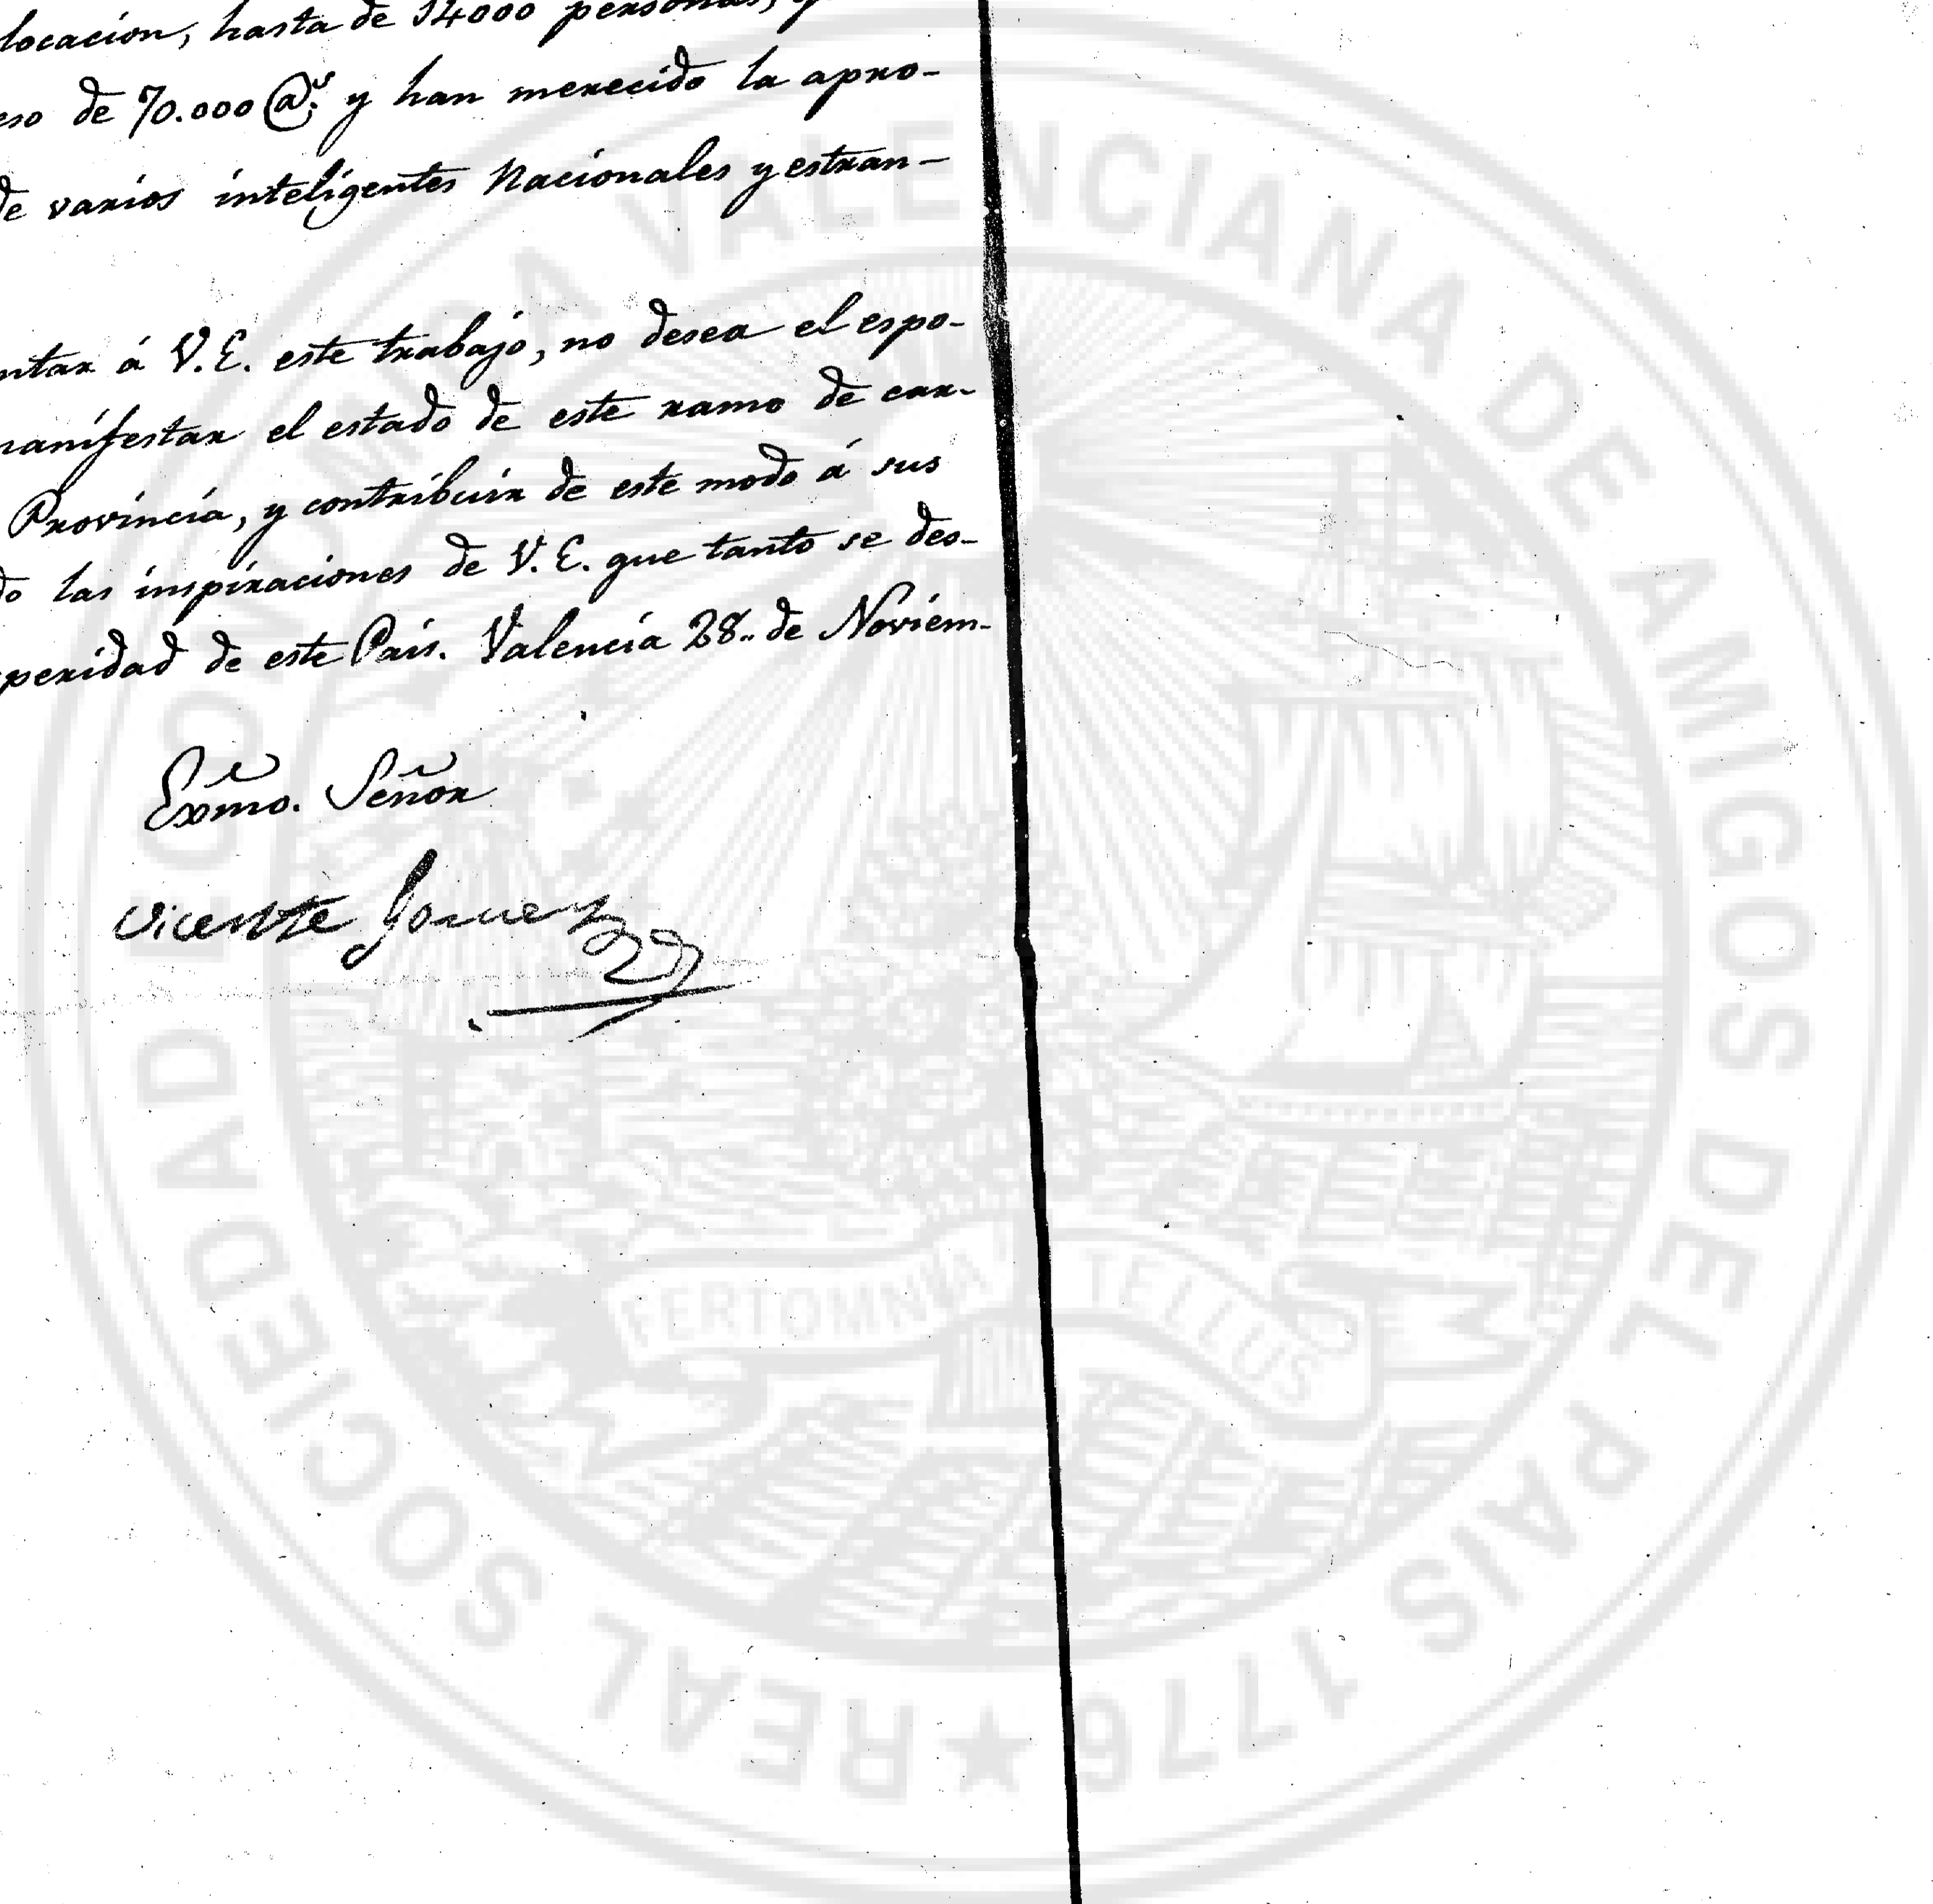 locacion, hasta de 14000 personas,
eso de 70.000 @.s y han merecido la apro-
de varios inteligentes Nacionales y estran-
ntar á V.E. este trabajo, no desea el espo-
manifestar el estado de este ramo de car-
Provincia, y contribuir de este modo á sus
do las inspiraciones de V.E. que tanto se des-
peridad de este Pais. Valencia 28.. de Noviem-
Exmo. Señor
Vicente
REAL SOCIEDAD ECONOMICA VALENCIANA DE AMIGOS DEL PAIS 1776
FERT OMNIA TELLUS